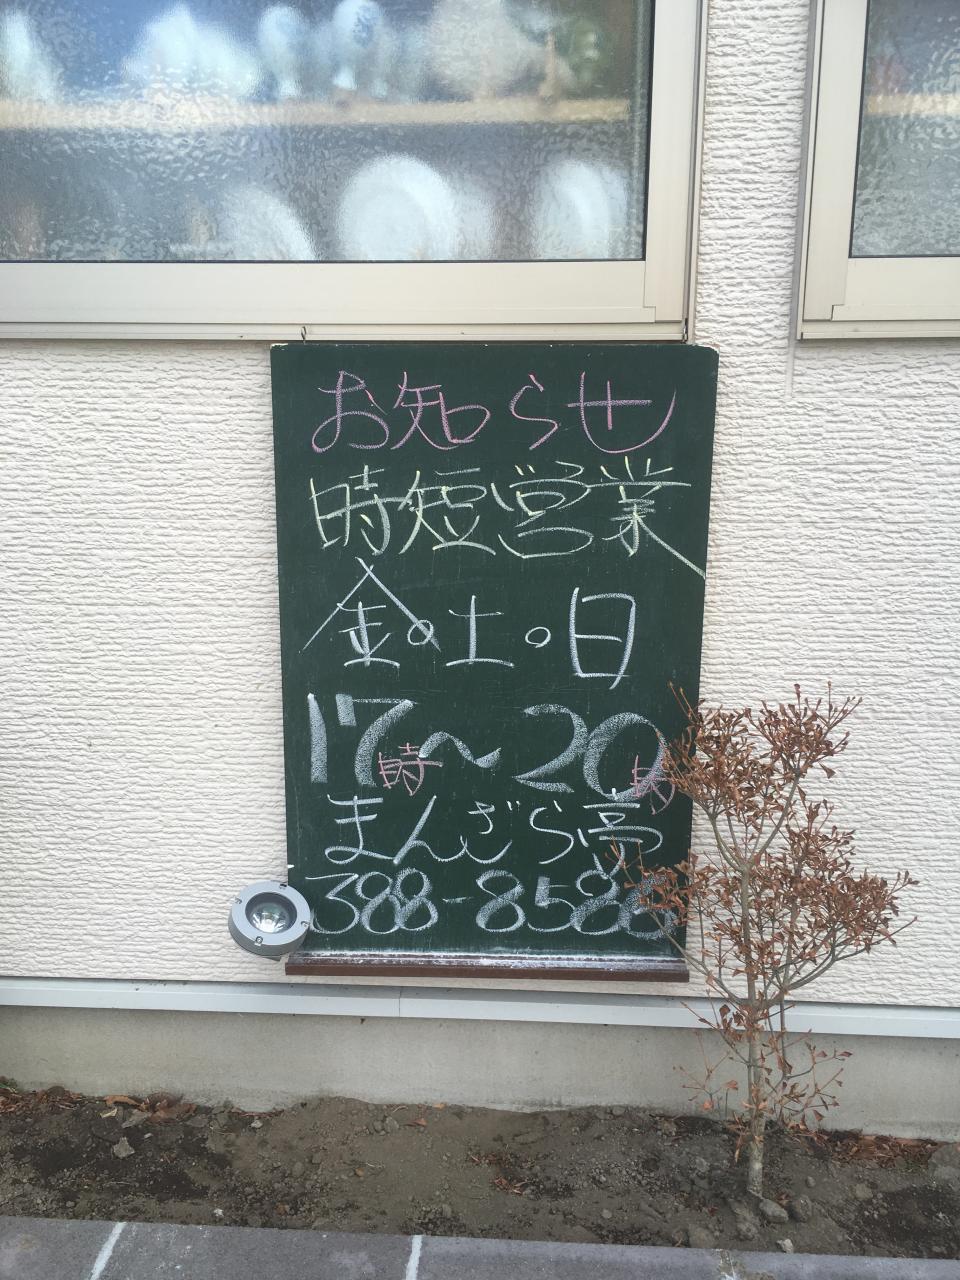 お知らせ
時短営業
金。土。日
17時～20時
まんざら亭
388-8586